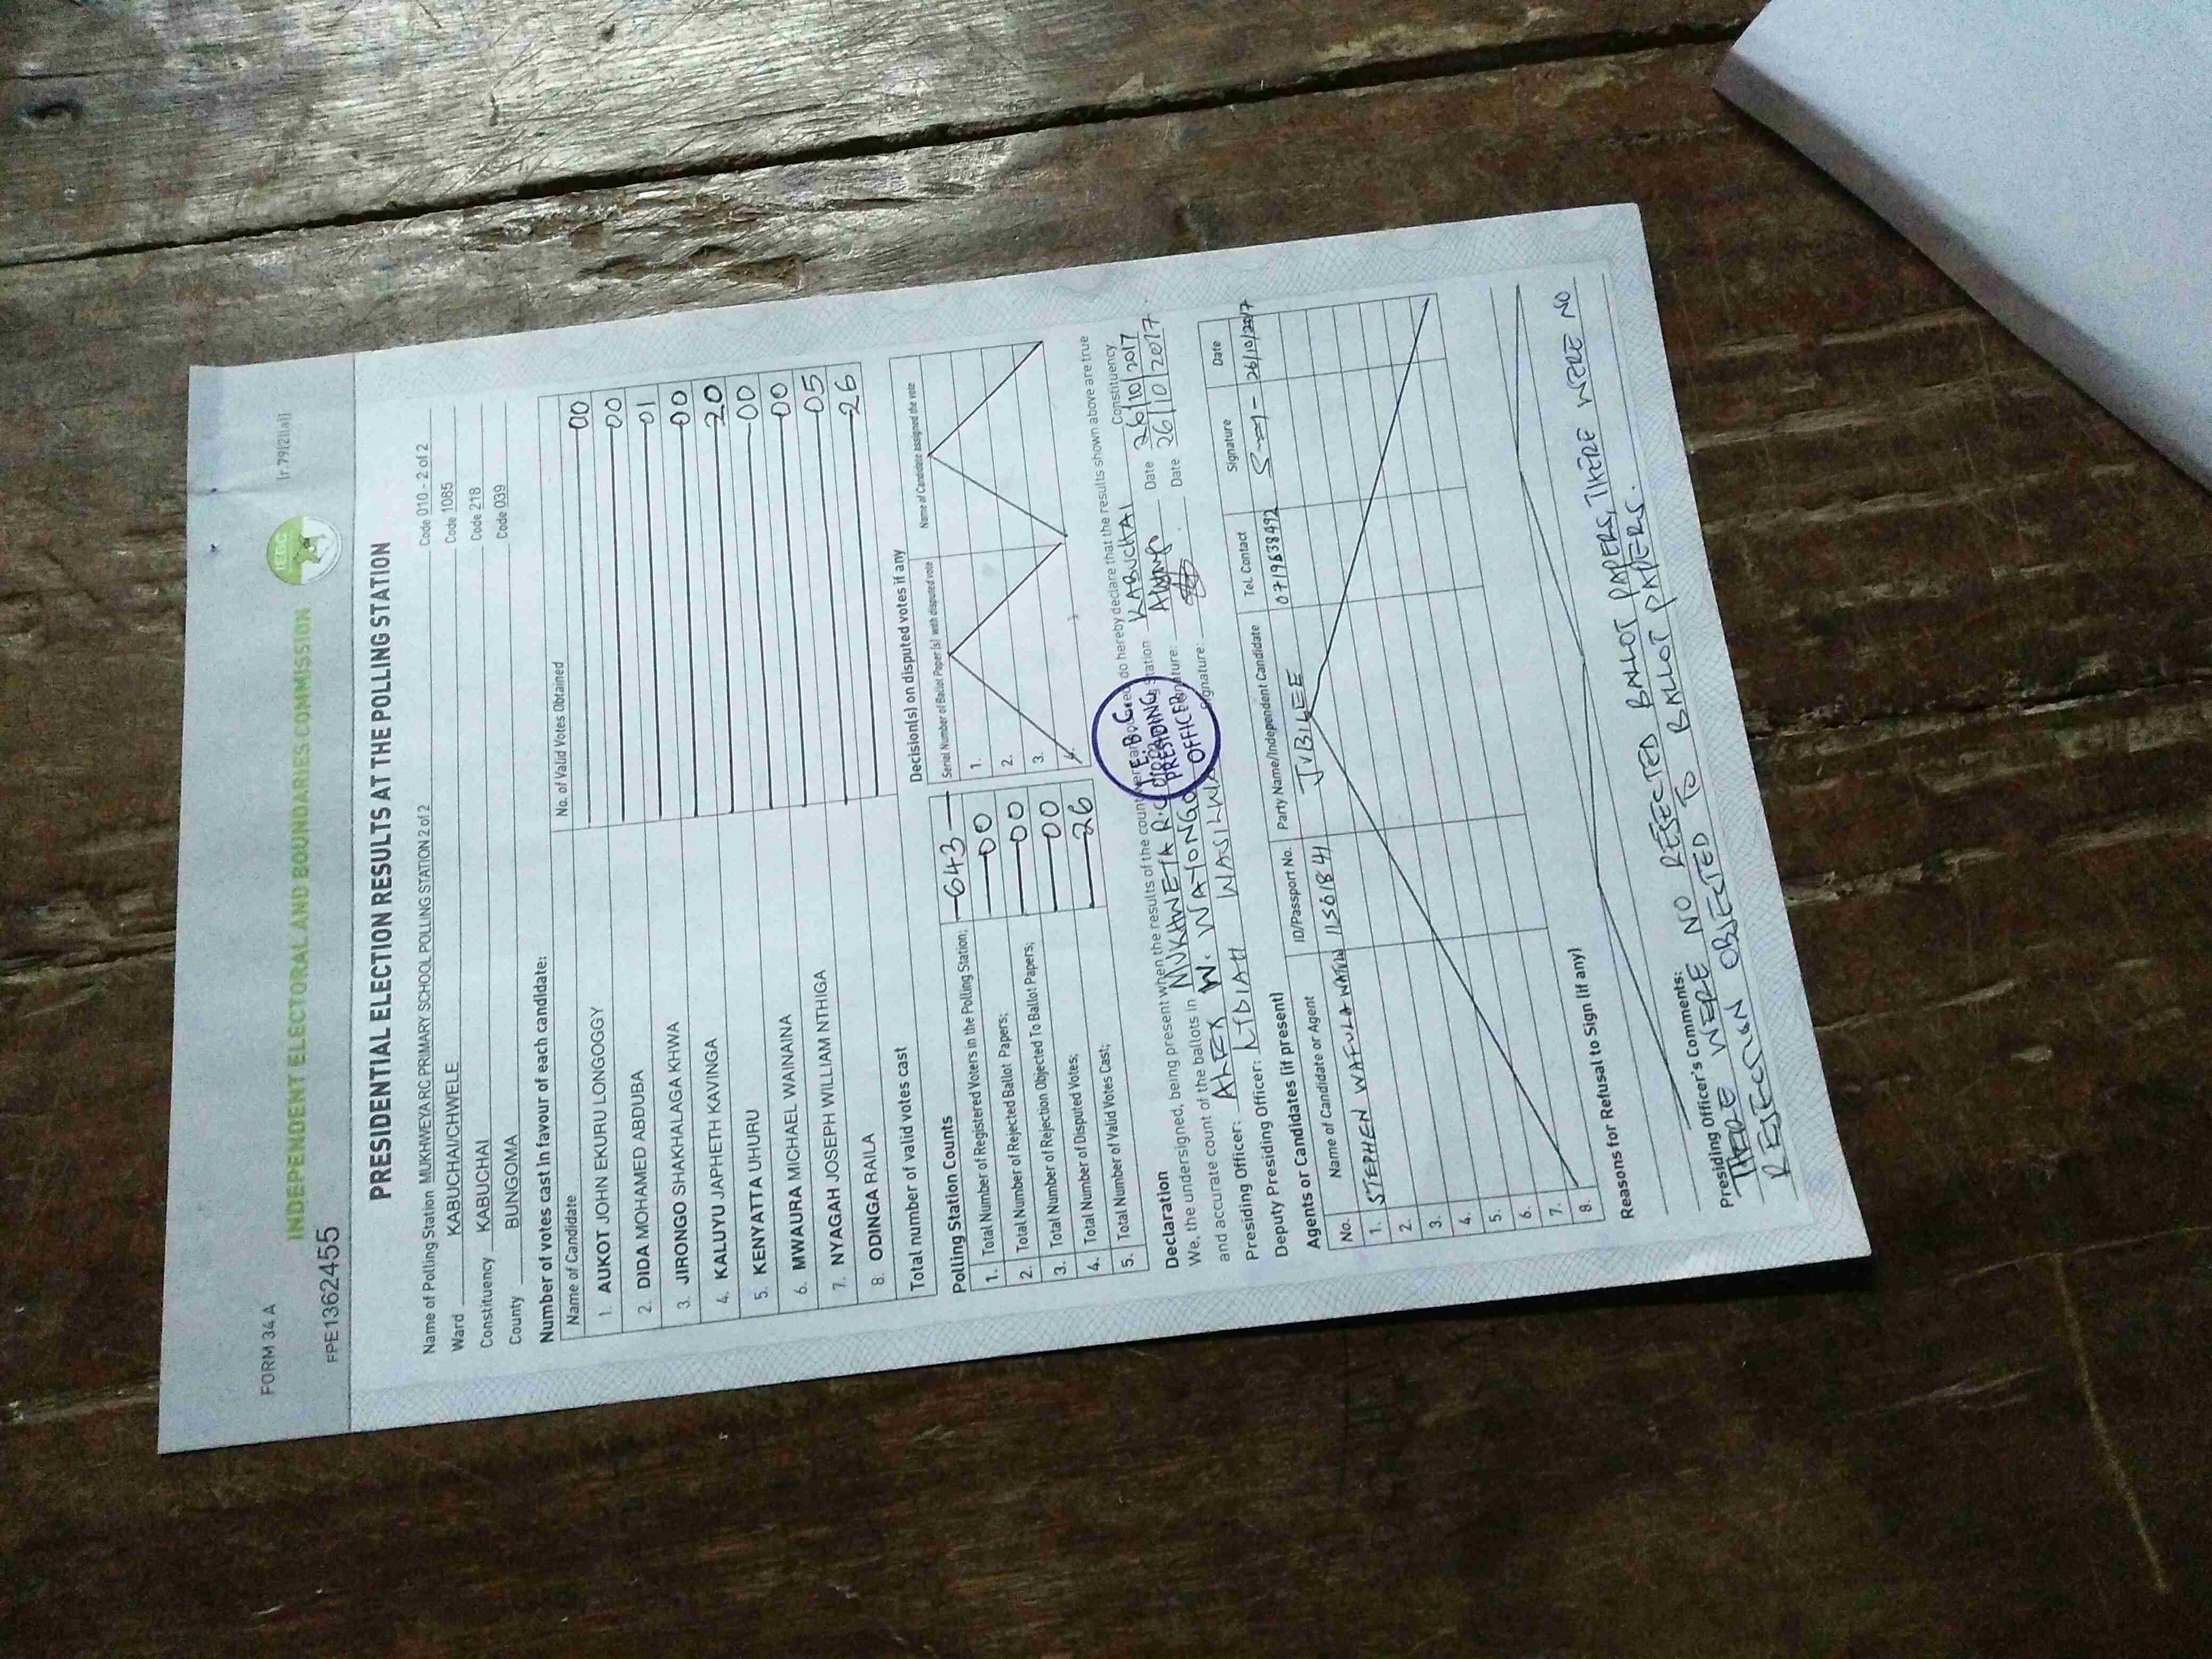 FORM 34 A
(r.79(2)(a))
INDEPENDENT ELECTORAL AND BOUNDARIES COMMISSION
IEBC
FPE1362455
PRESIDENTIAL ELECTION RESULTS AT THE POLLING STATION
Name of Polling Station MUKHWEYA RC PRIMARY SCHOOL POLLING STATION 2 of 2 Code 010 - 2 of 2
Ward KABUCHAI/CHWELE Code 1085
Constituency KABUCHAI Code 218
County BUNGOMA Code 039
Number of votes cast in favour of each candidate:
Name of Candidate No. of Valid Votes Obtained
1. AUKOT JOHN EKURU LONGOGGY 00
2. DIDA MOHAMED ABDUBA 00
3. JIRONGO SHAKHALAGA KHWA 01
4. KALUYU JAPHETH KAVINGA 00
5. KENYATTA UHURU 20
6. MWAURA MICHAEL WAINAINA 00
7. NYAGAH JOSEPH WILLIAM NTHIGA 00
8. ODINGA RAILA 05
Total number of valid votes cast 26
Polling Station Counts
1. Total Number of Registered Voters in the Polling Station; 643
2. Total Number of Rejected Ballot Papers; 00
3. Total Number of Rejection Objected To Ballot Papers; 00
4. Total Number of Disputed Votes; 00
5. Total Number of Valid Votes Cast; 26
Decision(s) on disputed votes if any
Serial Number of Ballot Paper (s) with disputed vote Name of Candidate assigned the vote
1.
2.
3.
4.
Declaration
We, the undersigned, being present when the results of the count were do hereby declare that the results shown above are true
and accurate count of the ballots in MUKHWEYA R.C Station KABUCHAI Constituency
Presiding Officer: ALEX W. WAYONGO Signature: Date 26/10/2017
Deputy Presiding Officer: LYDIAH WASILWA Signature: Date 26/10/2017.
I.E.B.C.
PRESIDING
OFFICER
Agents or Candidates (if present)
No. Name of Candidate or Agent ID/Passport No. Party Name/Independent Candidate Tel. Contact Signature Date
1. STEPHEN WAFULA 11561841 JUBILEE 0719638492 26/10/2017
2.
3.
4.
5.
6.
7.
8.
Reasons for Refusal to Sign (If any)
Presiding Officer's Comments:
THERE WERE NO REJECTED BALLOT PAPERS, THERE WERE NO
REJECTION OBJECTED TO BALLOT PAPERS.